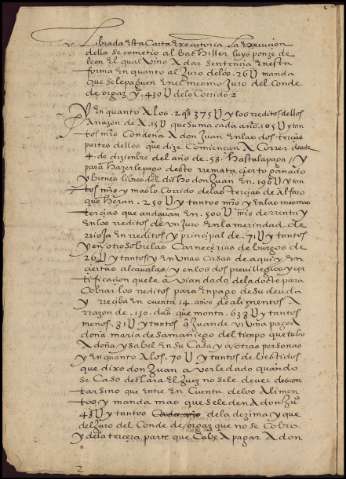 Librada esta Carta executoria La execuçion
della se cometio al Bachiller luys ponze de
leon el qual vino A dar sentençia en esta
forma en quanto al Juro de los .26U manda
que se le paguen en el mismo Juro del Conde
de orgaz y .439U de lo Corrido
Y en quanto A los .2q̄s 375U y los reditos dellos
A razon de A 15U que suma cada año .105U y tan
tos mrs Condena A Don Juan en las dos terçias
partes dellos que dize Comiençan A Correr desde
4 de diziembre del año de .53. hasta la paga // y
para hazerle pago deste remata çierto ganado
y bienes libres del dicho don Juan en .190U y tan
tos mrs y mas lo Corrido de las terçias de Alfaro
que heran .250U y tantos mrs y en las mismas
terçias que andavan en .500U mrs de renta y
en los reditos de un Juro en la merindad de
rioJa en reditos y principal de .71U y tantos
y en otro sobre las Carneçerias de burgos de
26U y tantos y en unas Casas de aqui y en
çiertas alcavalas y en los dos previllegios y
tificaçion que le A vian dado de la dote para
Cobrar los reditos para en pago de su deuda
y reciba en cuenta 14 años de alimentos A
razon de .150. das que monta .633U y tantos
menos .81U y tantos
doña maria de samaniego del tiempo que tubo
A doña ysabel en su Casa y a otras personas
y en quanto A los .70U y tantos de vestidos
que dixo don Juan averle dado quando
se Caso declara el Juez no se le deve descon
tar sino que entre en Cuenta de los Alimen
tos y manda mas que se le den A don Juan
43U y tantos Cada año de la dezima y que
del Juro del Conde de orgaz que no se Cobro
y de la terçera parte que Cabe A pagar A don